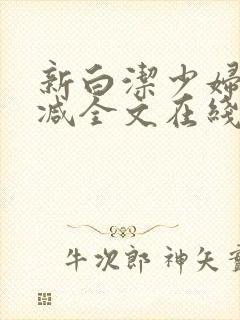 新白潔少婦
减全文在綫
牛次郎 神矢